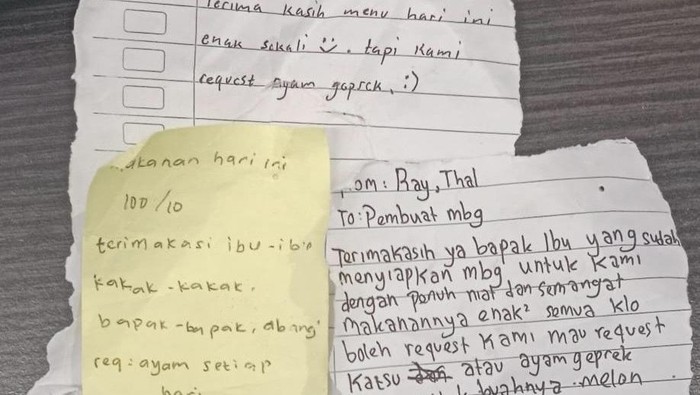 Terima kasih menu hari ini
enak sekali . tapi kami
request Ayam geprek. :)
hari ini
100/10
terimakasi ibu-ibu
kakak-kakak.
bapak-bapak, abang
req: ayam setiap
hari
From: Ray, Thal
To: Pembuat mbg
Terimakasih ya bapak Ibu yang sudah
menyiapkan mbg untuk kami
dengan penuh niat dan semangat
makanannya enak² semua klo
boleh request kami mau request
Katsu atau ayam geprek
buahnya melon